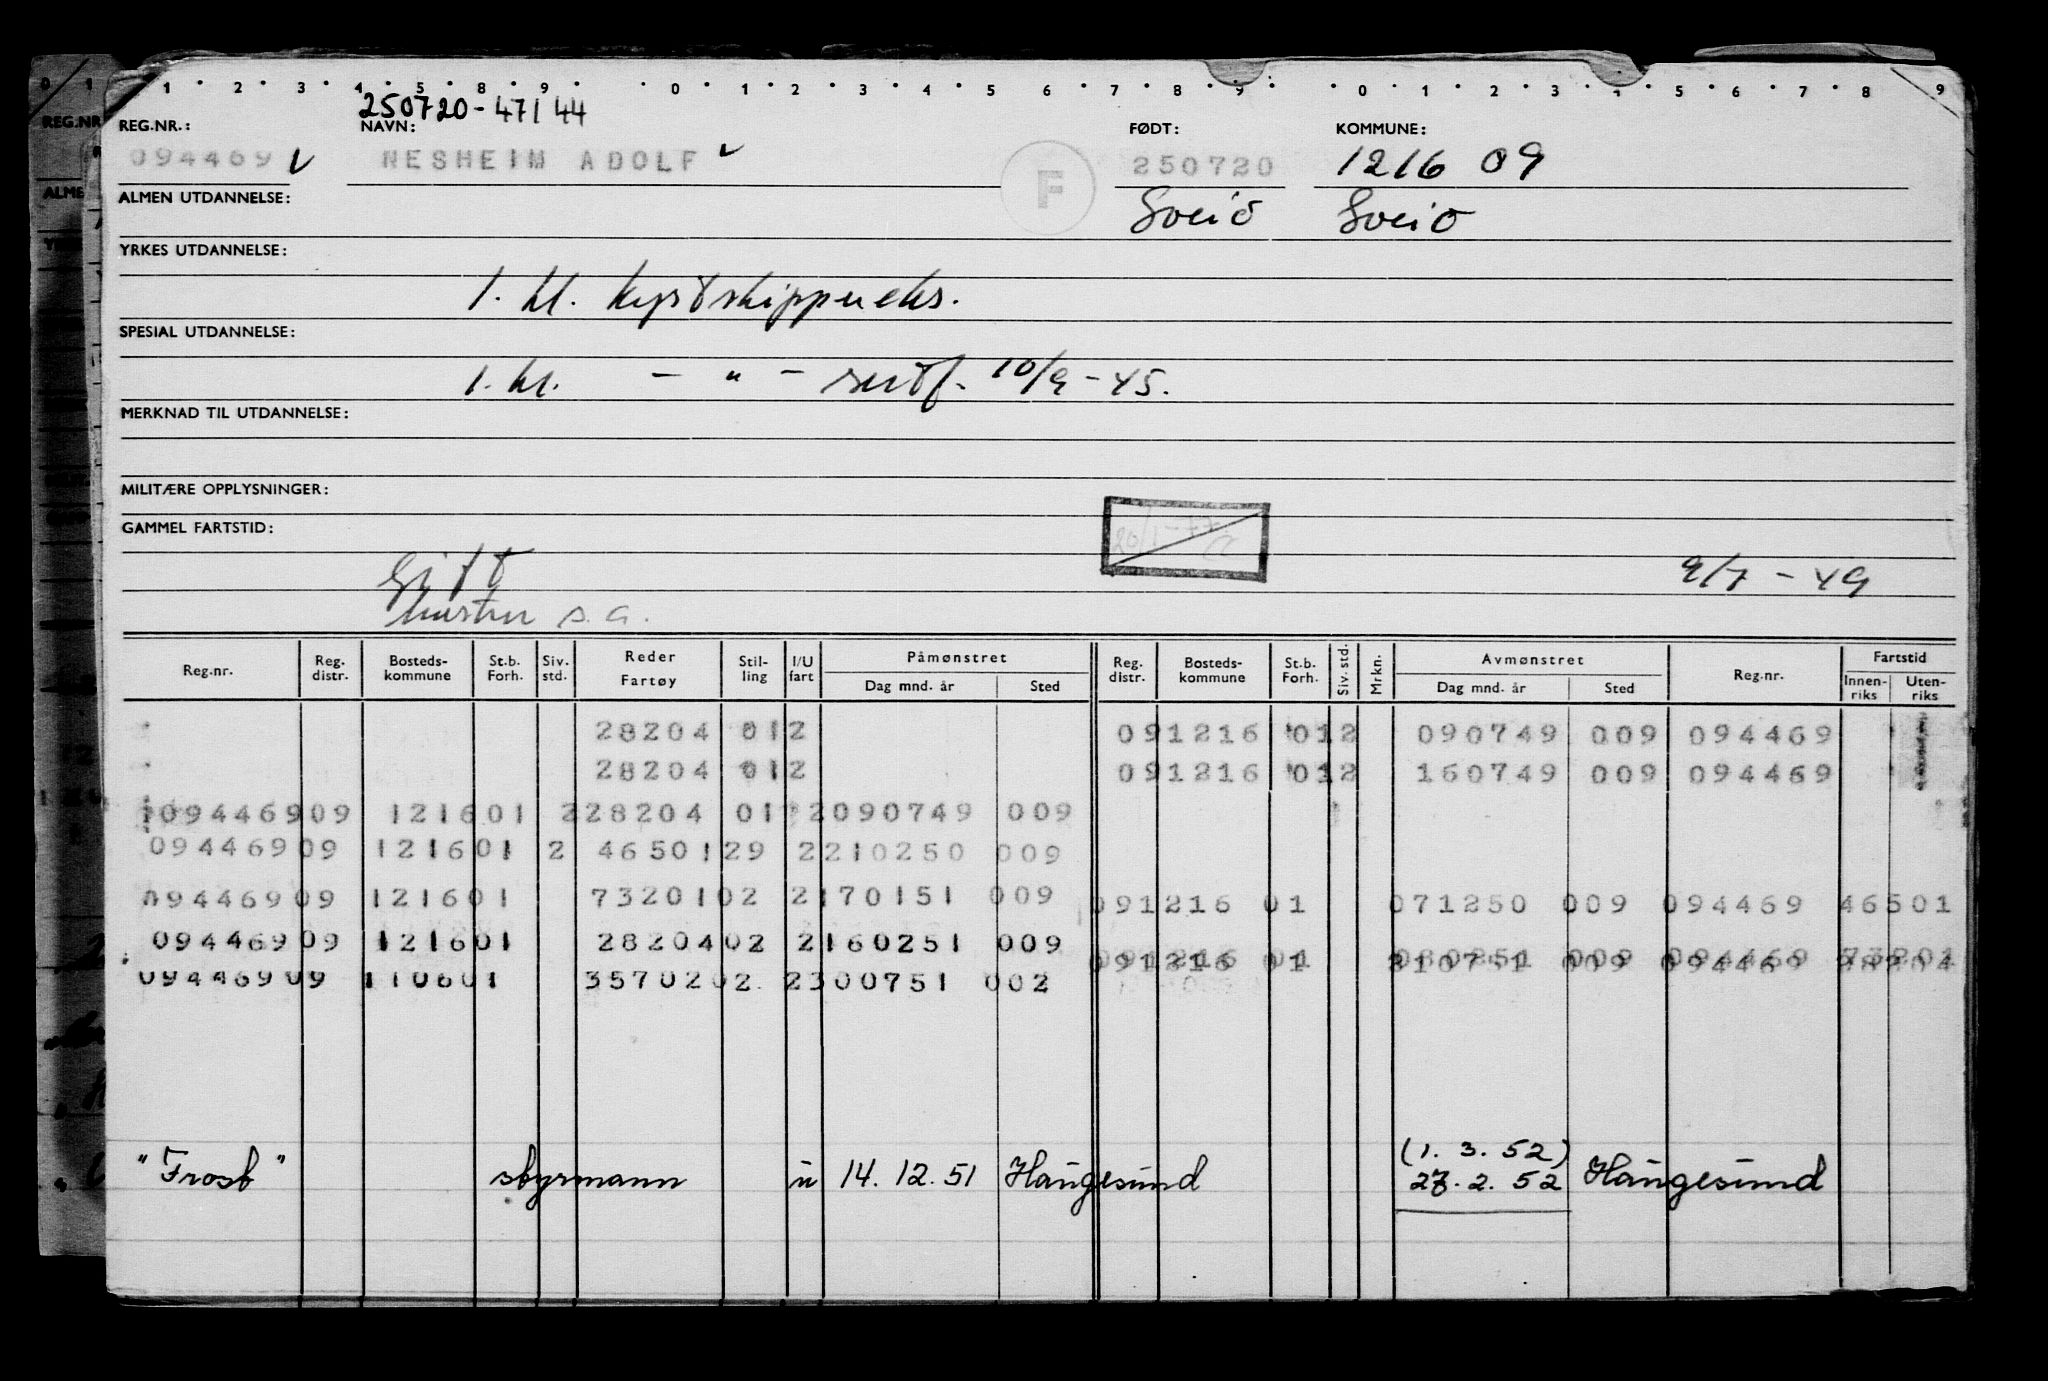 1 2 3 4 5 8 9 0 1 2 3 4 5 6 7 8 9 0 1 2 3 4 5 6 7 8 9
250720-47144
REG.NR.: NAVN: FØDT: KOMMUNE:
094469 NESHEIM ADOLF F 250720 1216 09
ALMEN UTDANNELSE: Sveio Sveio
YRKES UTDANNELSE:
1. kl. kystskippereks.
SPESIAL UTDANNELSE:
1. kl. - " - sertf. 10/9-45.
MERKNAD TIL UTDANNELSE:
MILITÆRE OPPLYSNINGER:
GAMMEL FARTSTID:
20/1-77
Gift 9/7-49
hustru s.a.
Reg.nr. Reg. distr. Bosteds-kommune St.b. Forh. Siv. std. Reder Fartøy Stil-ling I/U fart Påmønstret Dag mnd. år Sted Reg. distr. Bosteds-kommune St.b. Forh. Siv. std. Mrkn. Avmønstret Dag mnd. år Sted Reg.nr. Fartstid Innen-riks Uten-riks
28204 012 091216 012 090749 009 094469
28204 012 091216 012 160749 009 094469
09446909 121601 228204 01 2090749 009
09446909 121601 2 4650129 2210250 009
09446909 121601 7320102 2170151 009 091216 01 071250 009 094469 46501
09446909 121601 2820402 2160251 009
091216 01 009 094469
09446909 110601 3570202 2300751 002
(1. 3. 52)
"Frost" styrmann u 14. 12. 51 Haugesund 27. 2. 52 Haugesund